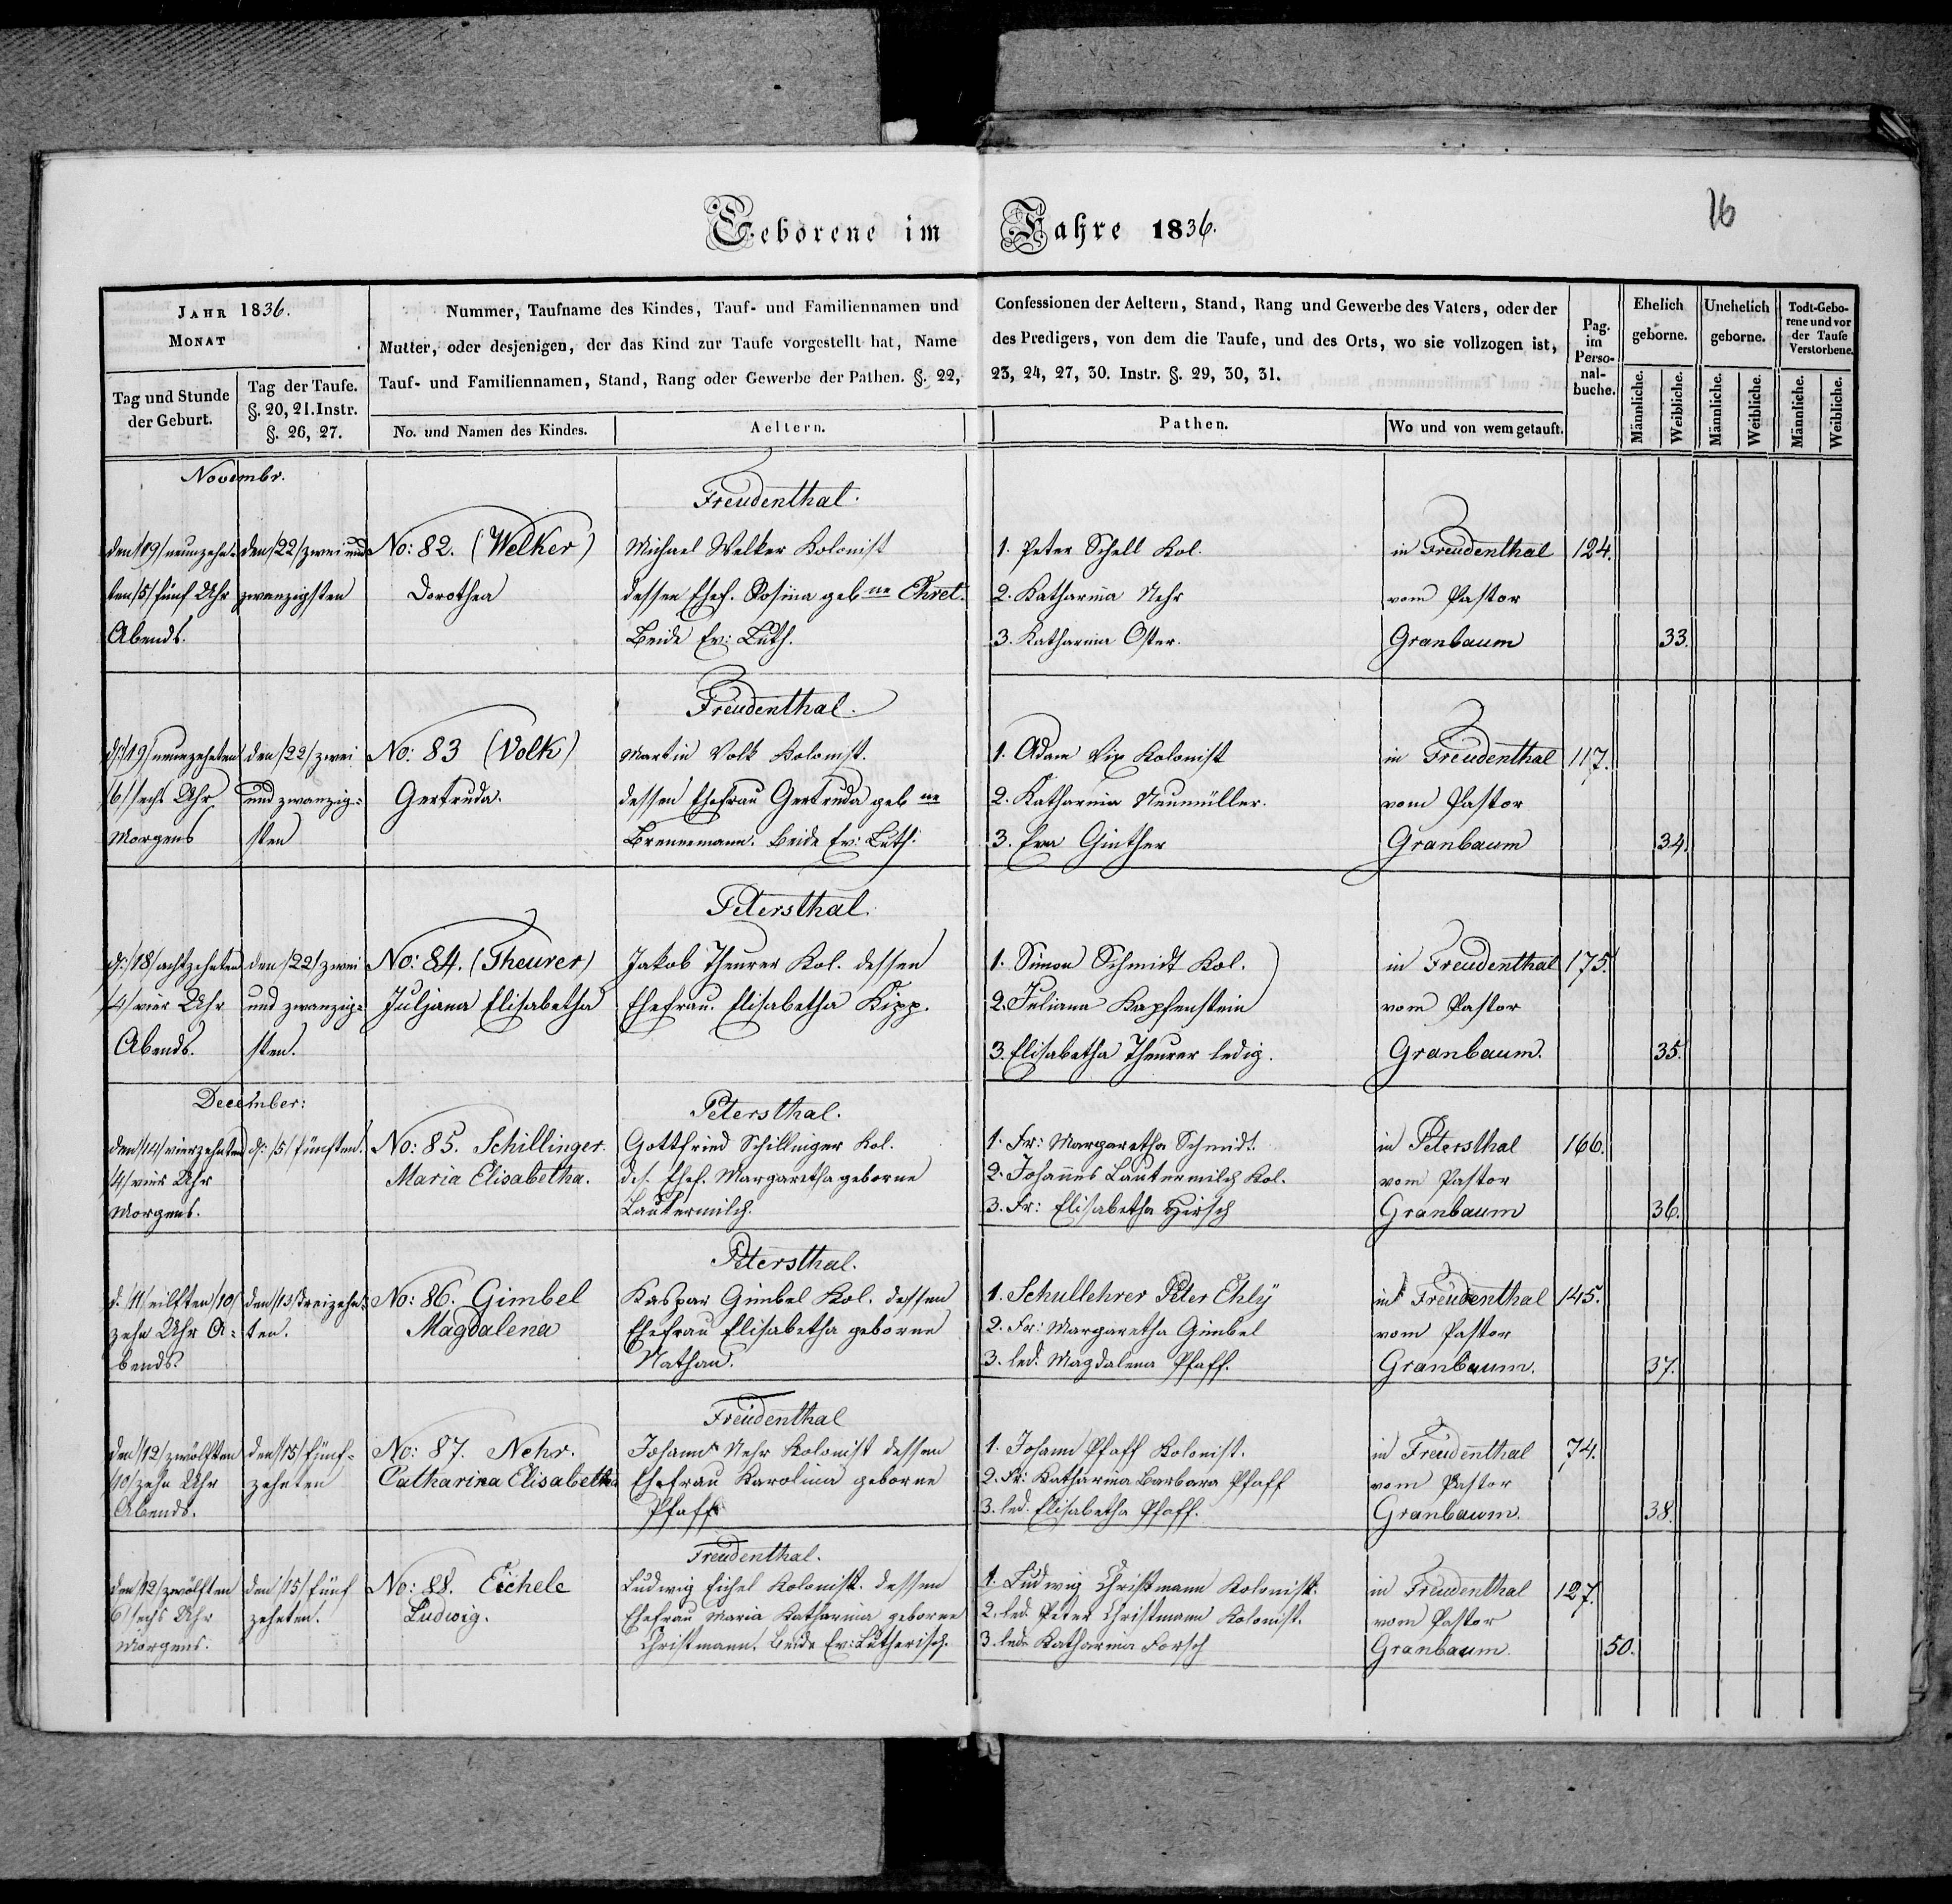 Geborene im Jahre 1836.
16
JAHR 1836.
MONAT
Tag und Stunde der Geburt.
Tag der Taufe. §. 20, 21. Instr. §. 26, 27.
Nummer, Taufname des Kindes, Tauf- und Familiennamen und
Mutter, oder desjenigen, der das Kind zur Taufe vorgestellt hat, Name
Tauf- und Familiennamen, Stand, Rang oder Gewerbe der Pathen. §. 22,
No. und Namen des Kindes.
Aeltern.
Confessionen der Aeltern, Stand, Rang und Gewerbe des Vaters, oder der
des Predigers, von dem die Taufe, und des Orts, wo sie vollzogen ist,
23, 24, 27, 30. Instr. §. 29, 30, 31.
Pathen.
Wo und von wem getauft.
Pag. im Perso-nal-buche.
Ehelich geborne.
Unehelich geborne.
Todt-Gebo-rene und vor der Taufe Verstorbene.
Männliche.
Weibliche.
Männliche.
Weibliche.
Männliche.
Weibliche.
Novembr.
Freudenthal.
den /19/ neunzehn-
ten /5/ fünf Uhr
Abends.
den /22/ zwei und
zwanzigsten
No: 82. (Welker)
Dorothea
Michael Welker Kolonist
dessen Ehef. Rosina geb ne Ehret.
Beide Ev: Luth.
1. Peter Schell Kol.
2. Katharina Nehr
3. Katharina Oster.
in Freudenthal
vom Pastor
Granbaum
124.
33.
Freudenthal.
d: /19/ neunzehnten
/6/ sechs Uhr
Morgens
den /22/ zwei
und zwanzig-
sten
No: 83 (Volk)
Gertruda.
Martin Volk Kolonist.
dessen Ehefrau Gertruda geb ne
Brennemann. Beide Ev: Luth:
1. Adam Vix Kolonist
2. Katharina Neumüller.
3. Eva Ginther
in Freudenthal
vom Pastor
Granbaum
117.
34.
Petersthal.
d: /18/ achtzehnten
/4/ vier Uhr
Abends.
den /22/ zwei
und zwanzig-
sten.
No: 84. (Theurer)
Juljana Elisabetha
Jakob Theurer Kol. dessen
Ehefrau. Elisabetha Kipp.
1. Simon Schmidt Kol.
2. Juliana Kapfenstein
3. Elisabetha Theurer ledig.
in Freudenthal
vom Pastor
Granbaum.
175.
35.
December:
Petersthal.
den /14/ vierzehnten
/4/ vier Uhr
Morgens.
d: /5/ fünften.
No: 85. Schillinger.
Maria Elisabetha.
Gottfried Schillinger Kol.
des. Ehef. Margaretha geborne
Lautermilch.
1. Fr: Margaretha Schmidt.
2. Johannes Lautermilch Kol.
3. Fr: Elisabetha Hirsch
in Petersthal
vom Pastor
Granbaum
166.
36.
Petersthal.
d. /11/ eilften /10/
zehn Uhr A-
bends.
den /13/ dreizehn-
ten.
No: 86. Gimbel
Magdalena
Kaspar Gimbel Kol. dessen
Ehefrau Elisabetha geborne
Nathan.
1. Schullehrer Peter Ehly
2. Fr: Margaretha Gimbel
3. led. Magdalena Pfaff.
in Freudenthal
vom Pastor
Granbaum.
145.
37.
Freudenthal
den /12/ zwölften
/10/ zehn Uhr
Abends.
den /15/ fünf-
zehnten
No: 87. Nehr.
Catharina Elisabetha
Johann Nehr Kolonist dessen
Ehefrau Karolina geborne
Pfaff
1. Johann Pfaff Kolonist.
2. Fr: Katharina Barbara Pfaff
3. led. Elisabetha Pfaff.
in Freudenthal
vom Pastor
Granbaum.
74.
38.
Freudenthal.
den /12/ zwölften
6/ sechs Uhr
Morgens.
den /15/ fünf
zehnten.
No: 88. Eichele
Ludwig.
Ludwig Eichel Kolonist. dessen
Ehefrau Maria Katharina geborne
Christmann. Beide Ev: Lutherisch.
1. Ludwig Christmann Kolonist.
2. led. Peter Christmann Kolonist.
3. led. Katharina Forsch
in Freudenthal
vom Pastor
Granbaum
127.
50.